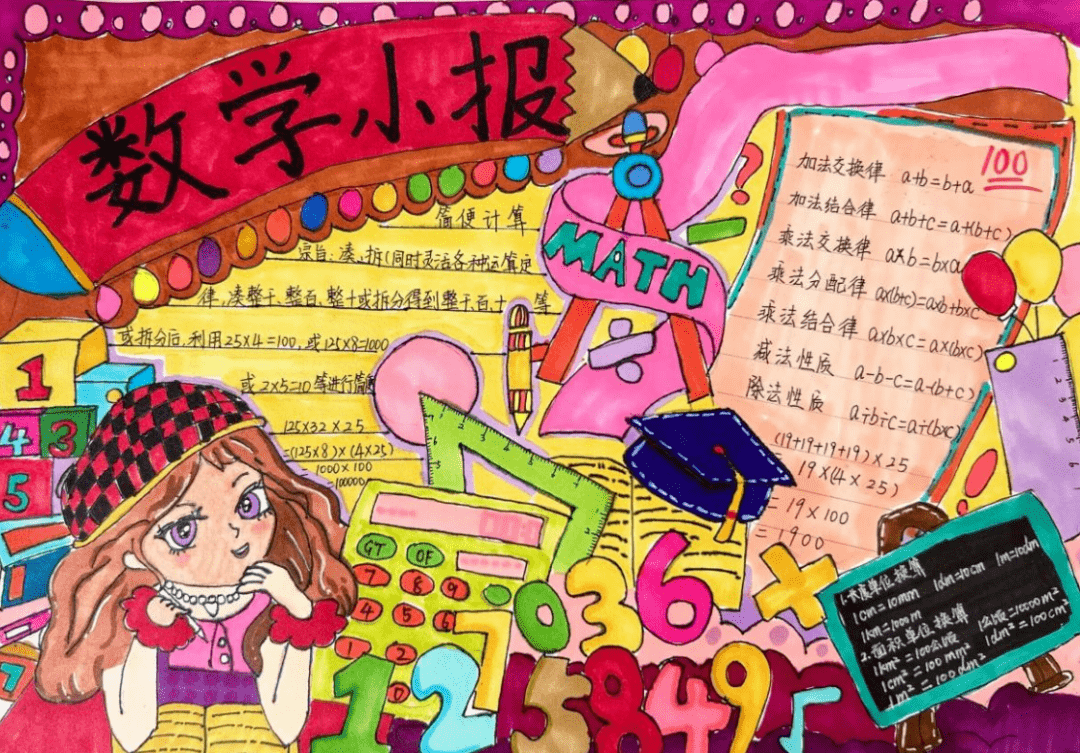 数学小报
简便计算
宗旨:凑、拆(同时灵活各种运算定
律,凑整千、整百、整十或拆分得到整千、百、十 等
或拆分后,利用25×4=100,或125×8=1000
或2×5=10等进行简
125×32×25
=(125×8)×(4×25)
=1000×100
=100000
MATH
100
加法交换律 a+b=b+a
加法结合律 a+b+c=a+(b+c)
乘法交换律 a×b=b×a
乘法分配律 a×(b+c)=a×b+b×c
乘法结合律 a×b×c=a×(b×c)
减法性质 a-b-c=a-(b+c)
除法性质 a÷b÷c=a÷(b×c)
(19+19+19+19)×25
=19×(4×25)
=19×100
=1900
1
4 3
5
1
7
GT OF
7 8 9
4 5 6
1 2
0
7 0 3 6 +
1 2 5 8 4 9
1.长度单位换算
1cm=10mm 1dm=10cm 1m=10dm
1km=1000m
2.面积单位换算 1公顷=10000m²
1km²=100公顷 1dm²=100cm²
1cm²=100mm²
1m²=100dm²